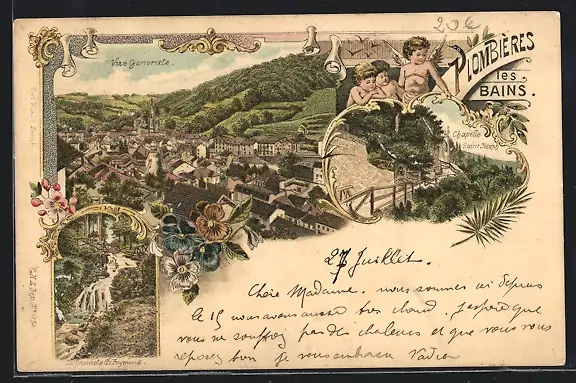 20 c
Vue Generale.
PLOMBIÈRES
les
BAINS.
Chapelle
Saint Joseph
27 Juillet.
Chère Madame. nous sommes ici depuis
le 15 nous avons aussi très chaud. J'espère que
vous ne souffrez pas des chaleurs et que vous vous
reposez bien je vous embrasse
Cascade du